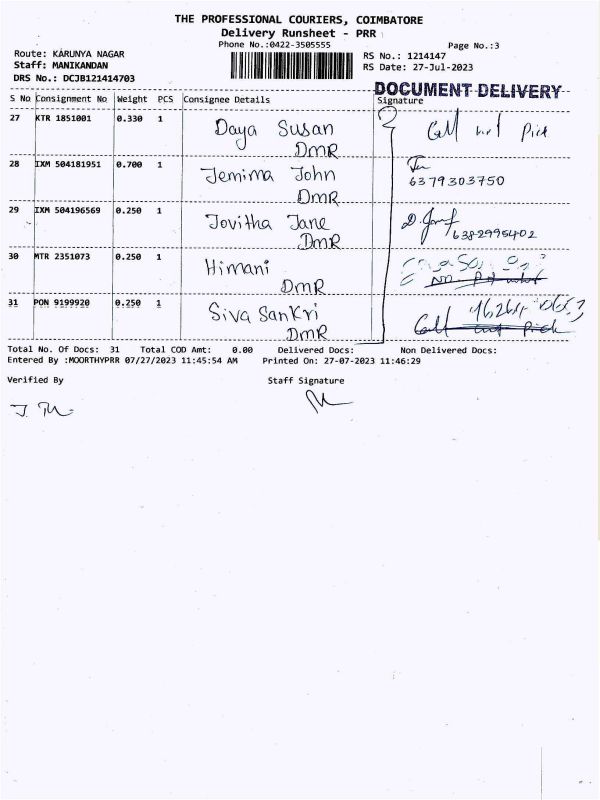 THE PROFESSIONAL COURIERS, COIMBATORE
Delivery Runsheet - PRR
Phone No.:0422-3505555
Page No.:3
Route: KARUNYA NAGAR
Staff: MANIKANDAN
DRS No.: DCJB121414703
RS No.: 1214147
RS Date: 27-Jul-2023
DOCUMENT DELIVERY
S No Consignment No Weight PCS Consignee Details Signature
27 KTR 1851001 0.330 1 Daya Susan Call not Pick
DMR
28 IXM 504181951 0.700 1 Jemima John
6379303750
DMR
29 IXM 504196569 0.250 1 Jovitha Jane
DMR 6382995402
30 MTR 2351073 0.250 1 Himani
DMR
31 PON 9199920 0.250 1 Siva Sankri
DMR Call not Pick
Total No. Of Docs: 31 Total COD Amt: 0.00 Delivered Docs: Non Delivered Docs:
Entered By :MOORTHYPRR 07/27/2023 11:45:54 AM Printed On: 27-07-2023 11:46:29
Verified By Staff Signature